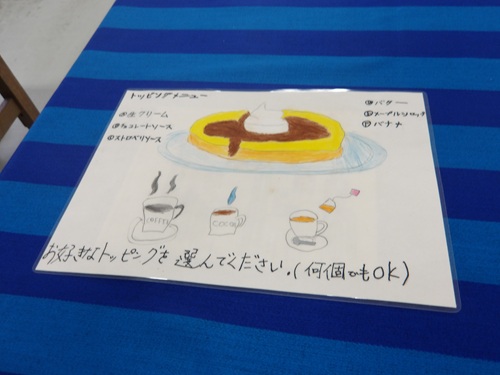 トッピングメニュー
生クリーム
チョコレートソース
ストロベリソース
バター
メープルシロップ
バナナ
COFFEE
COCOA
お好きなトッピングを選んでください。(何個でもOK)